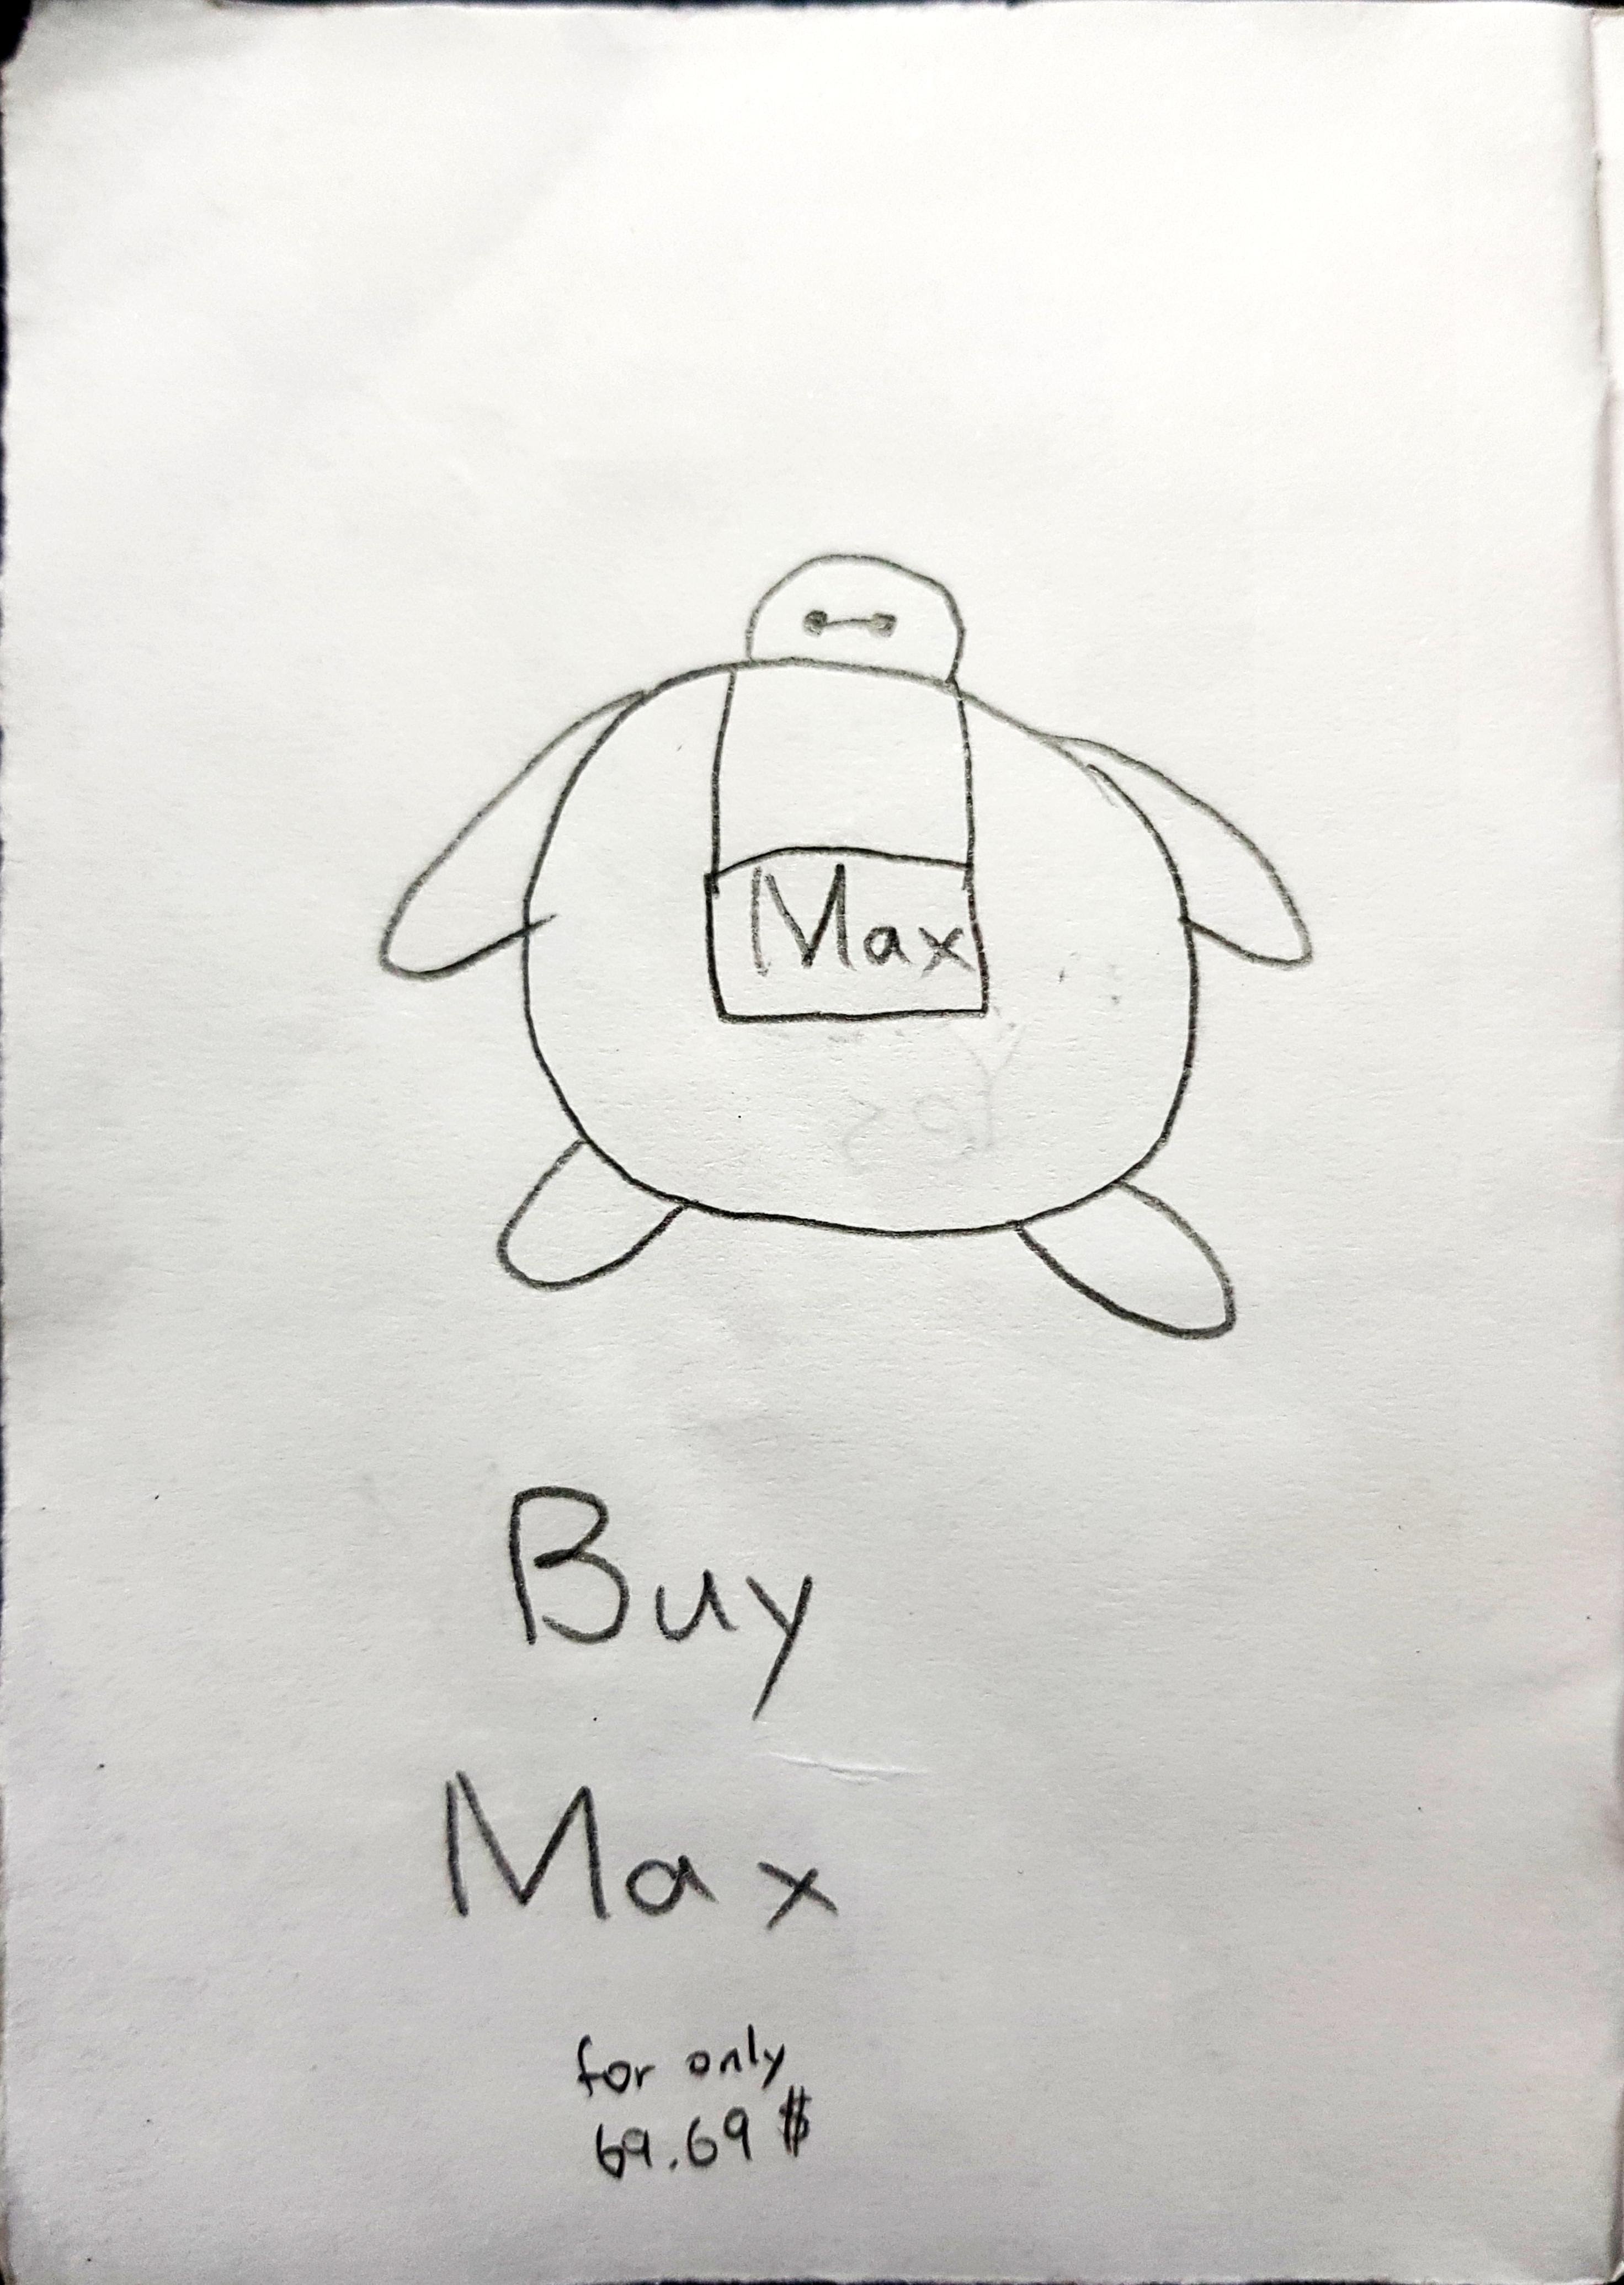 Max
Yes
Buy
Max
for only
69.69 $